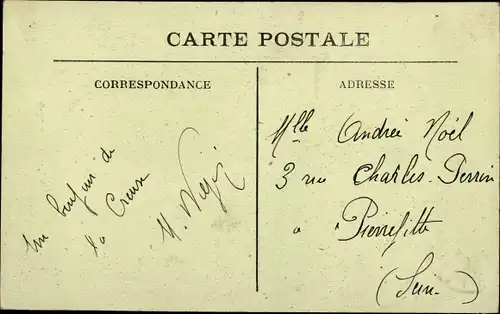 CARTE POSTALE
CORRESPONDANCE
Un bonjour de
la Creuse
ADRESSE
Mlle Andrée Noël
3 rue Charles-Perrin
à Pierrefitte
(Seine)